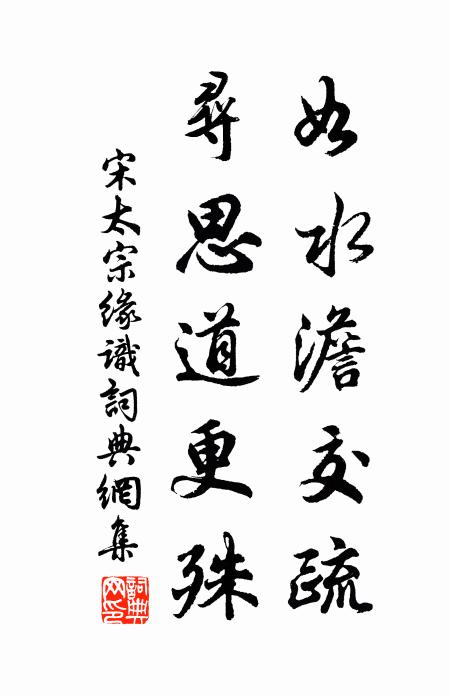 如水澹交疏
尋思道更殊
宋太宗緣識詞典網集
詞典網印